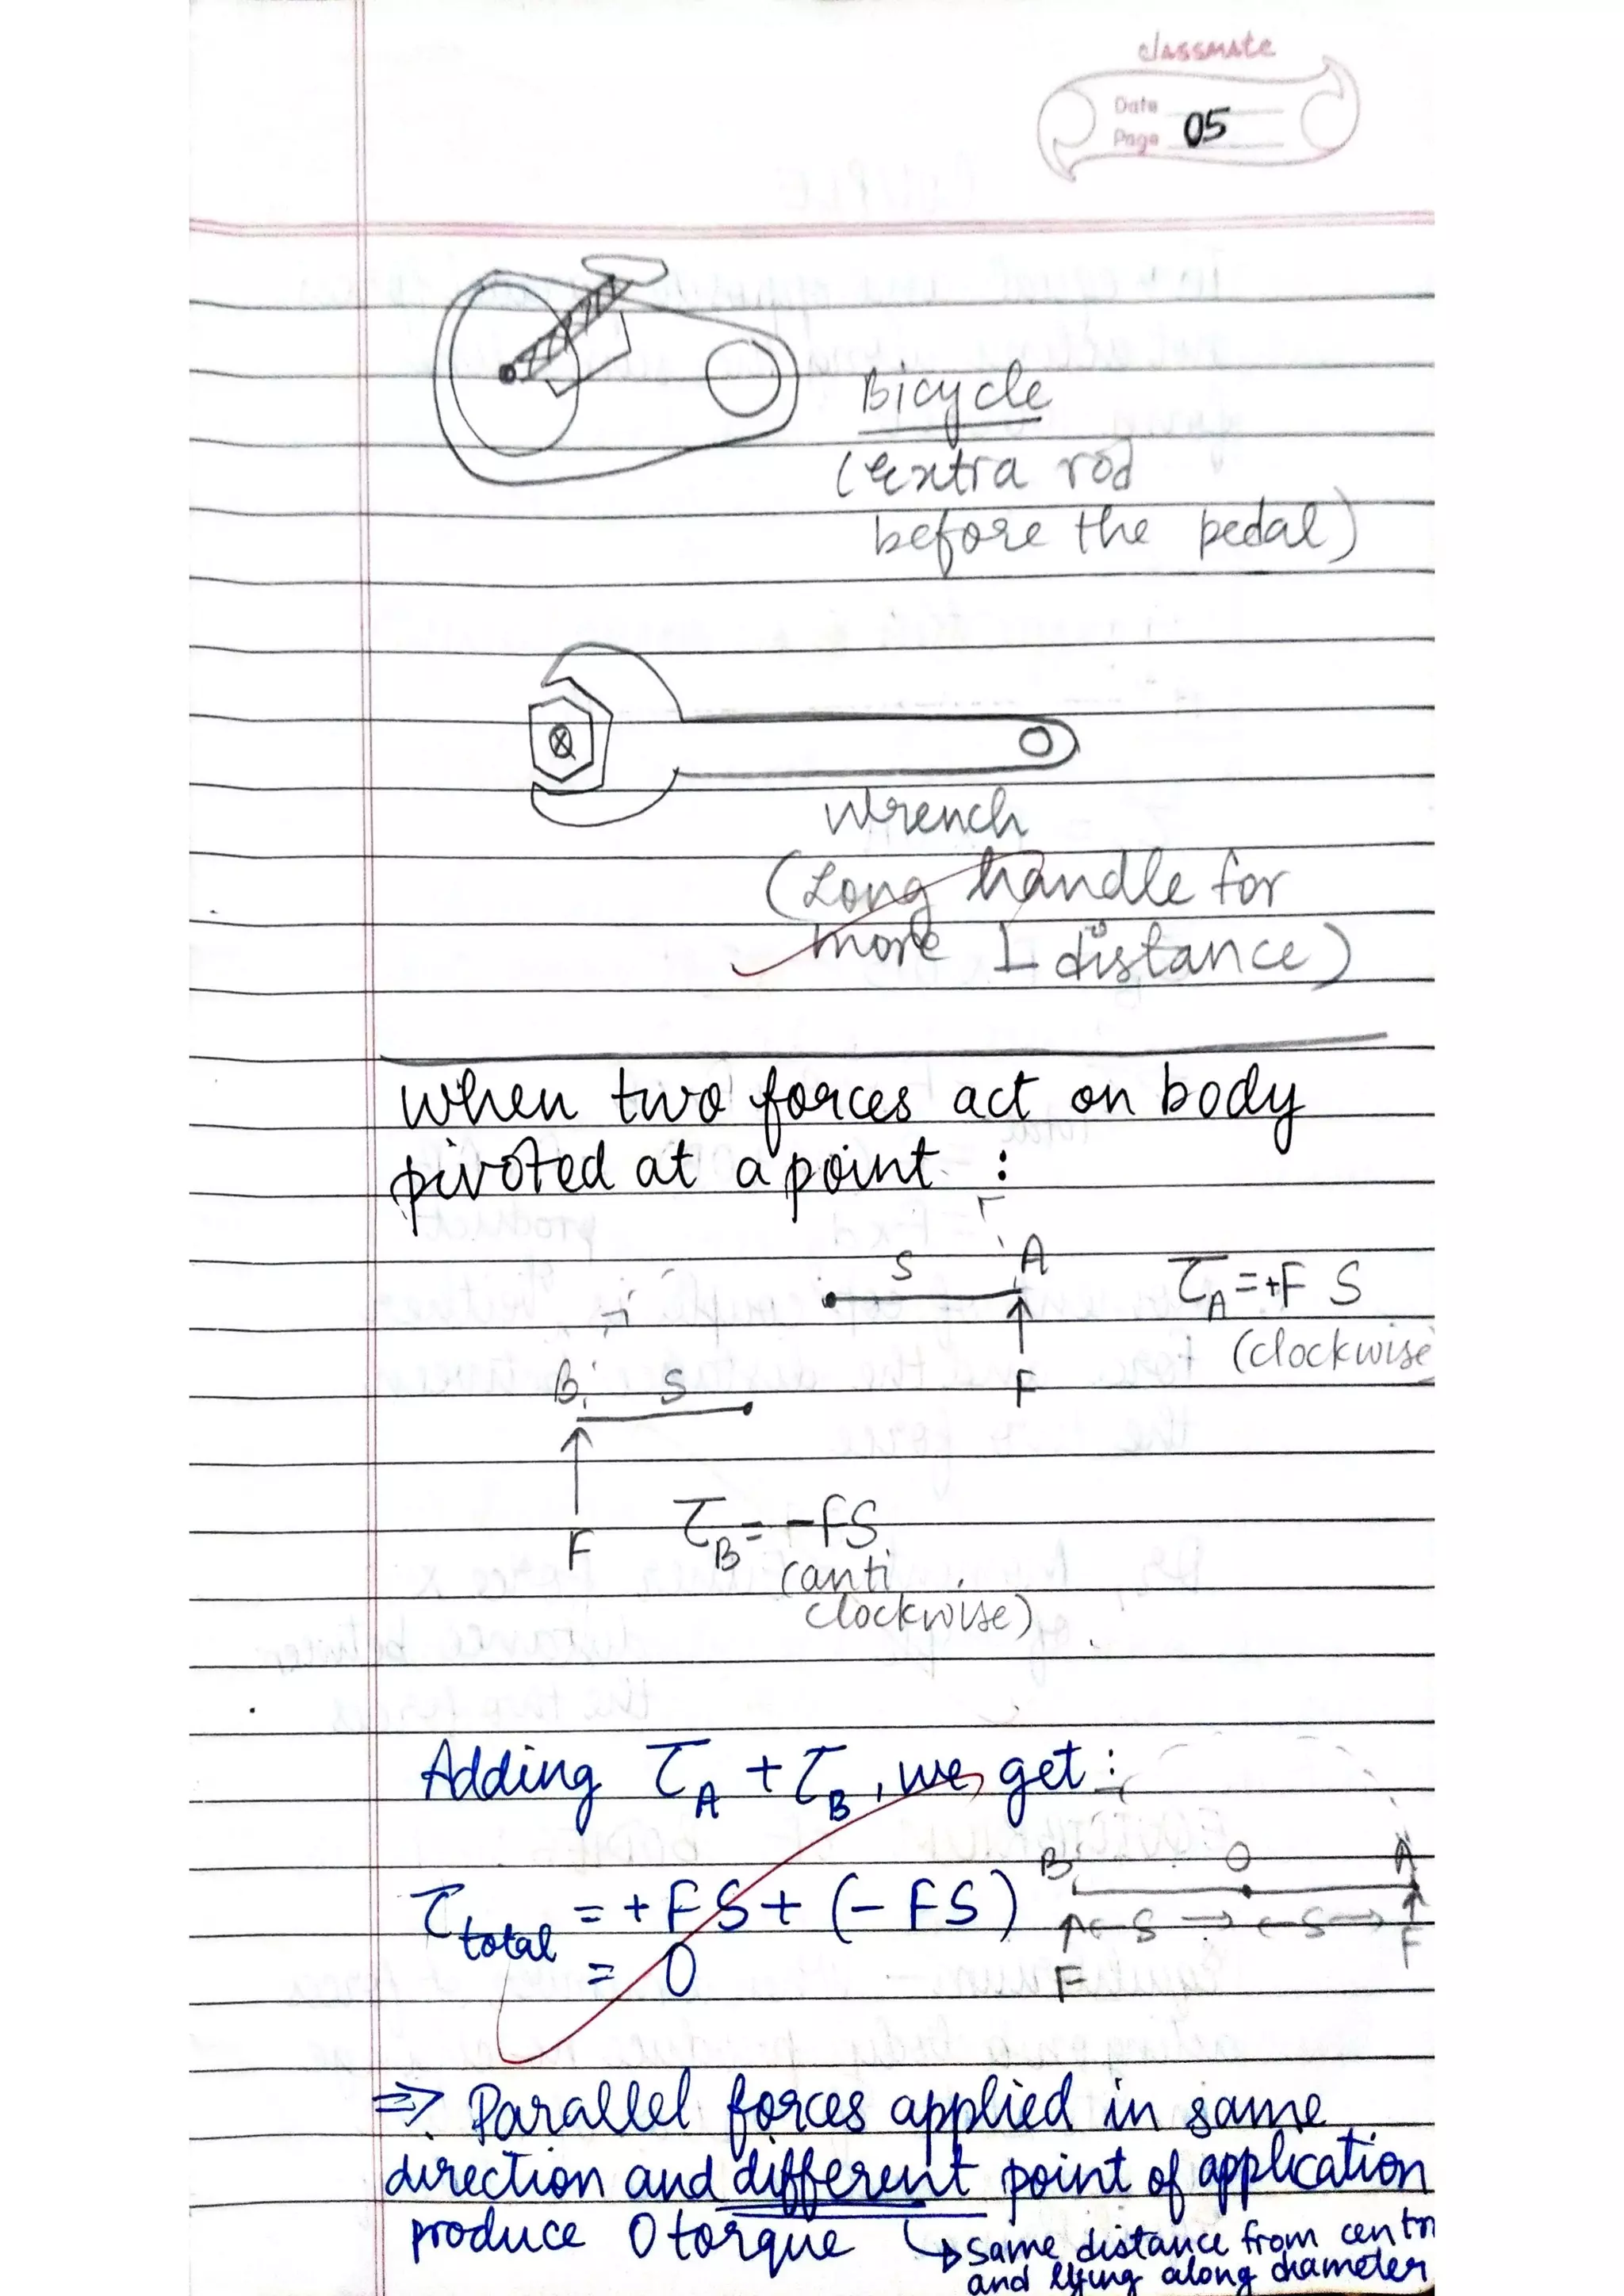 classmate
Date
Page 05
Bicycle
(extra rod
before the pedal)
Wrench
(Long handle for
more ⊥ distance)
When two forces act on body
pivoted at a point :
S A
τA = +F S
(clockwise
F
B S
F
τB = -FS
(anti
clockwise)
Adding τA + τB, we get :
B O A
τtotal = +FS + (- FS)
S S
F
= 0
F
⇒ Parallel forces applied in same
direction and different point of application
produce 0 torque
↳ same distance from centr
and lying along diameter